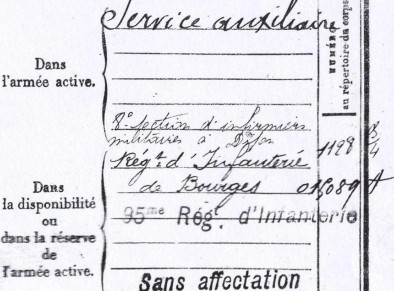 Service auxiliaire
NUMÉRO
au répertoire du corps
Dans
l'armée active.
8e section d'infirmiers
militaires à Dijon
1198
Régt. d'Infanterie
de Bourges
Dans
la disponibilité
ou
dans la réserve
de
l'armée active.
95me Régt. d'Infanterie
Sans affectation